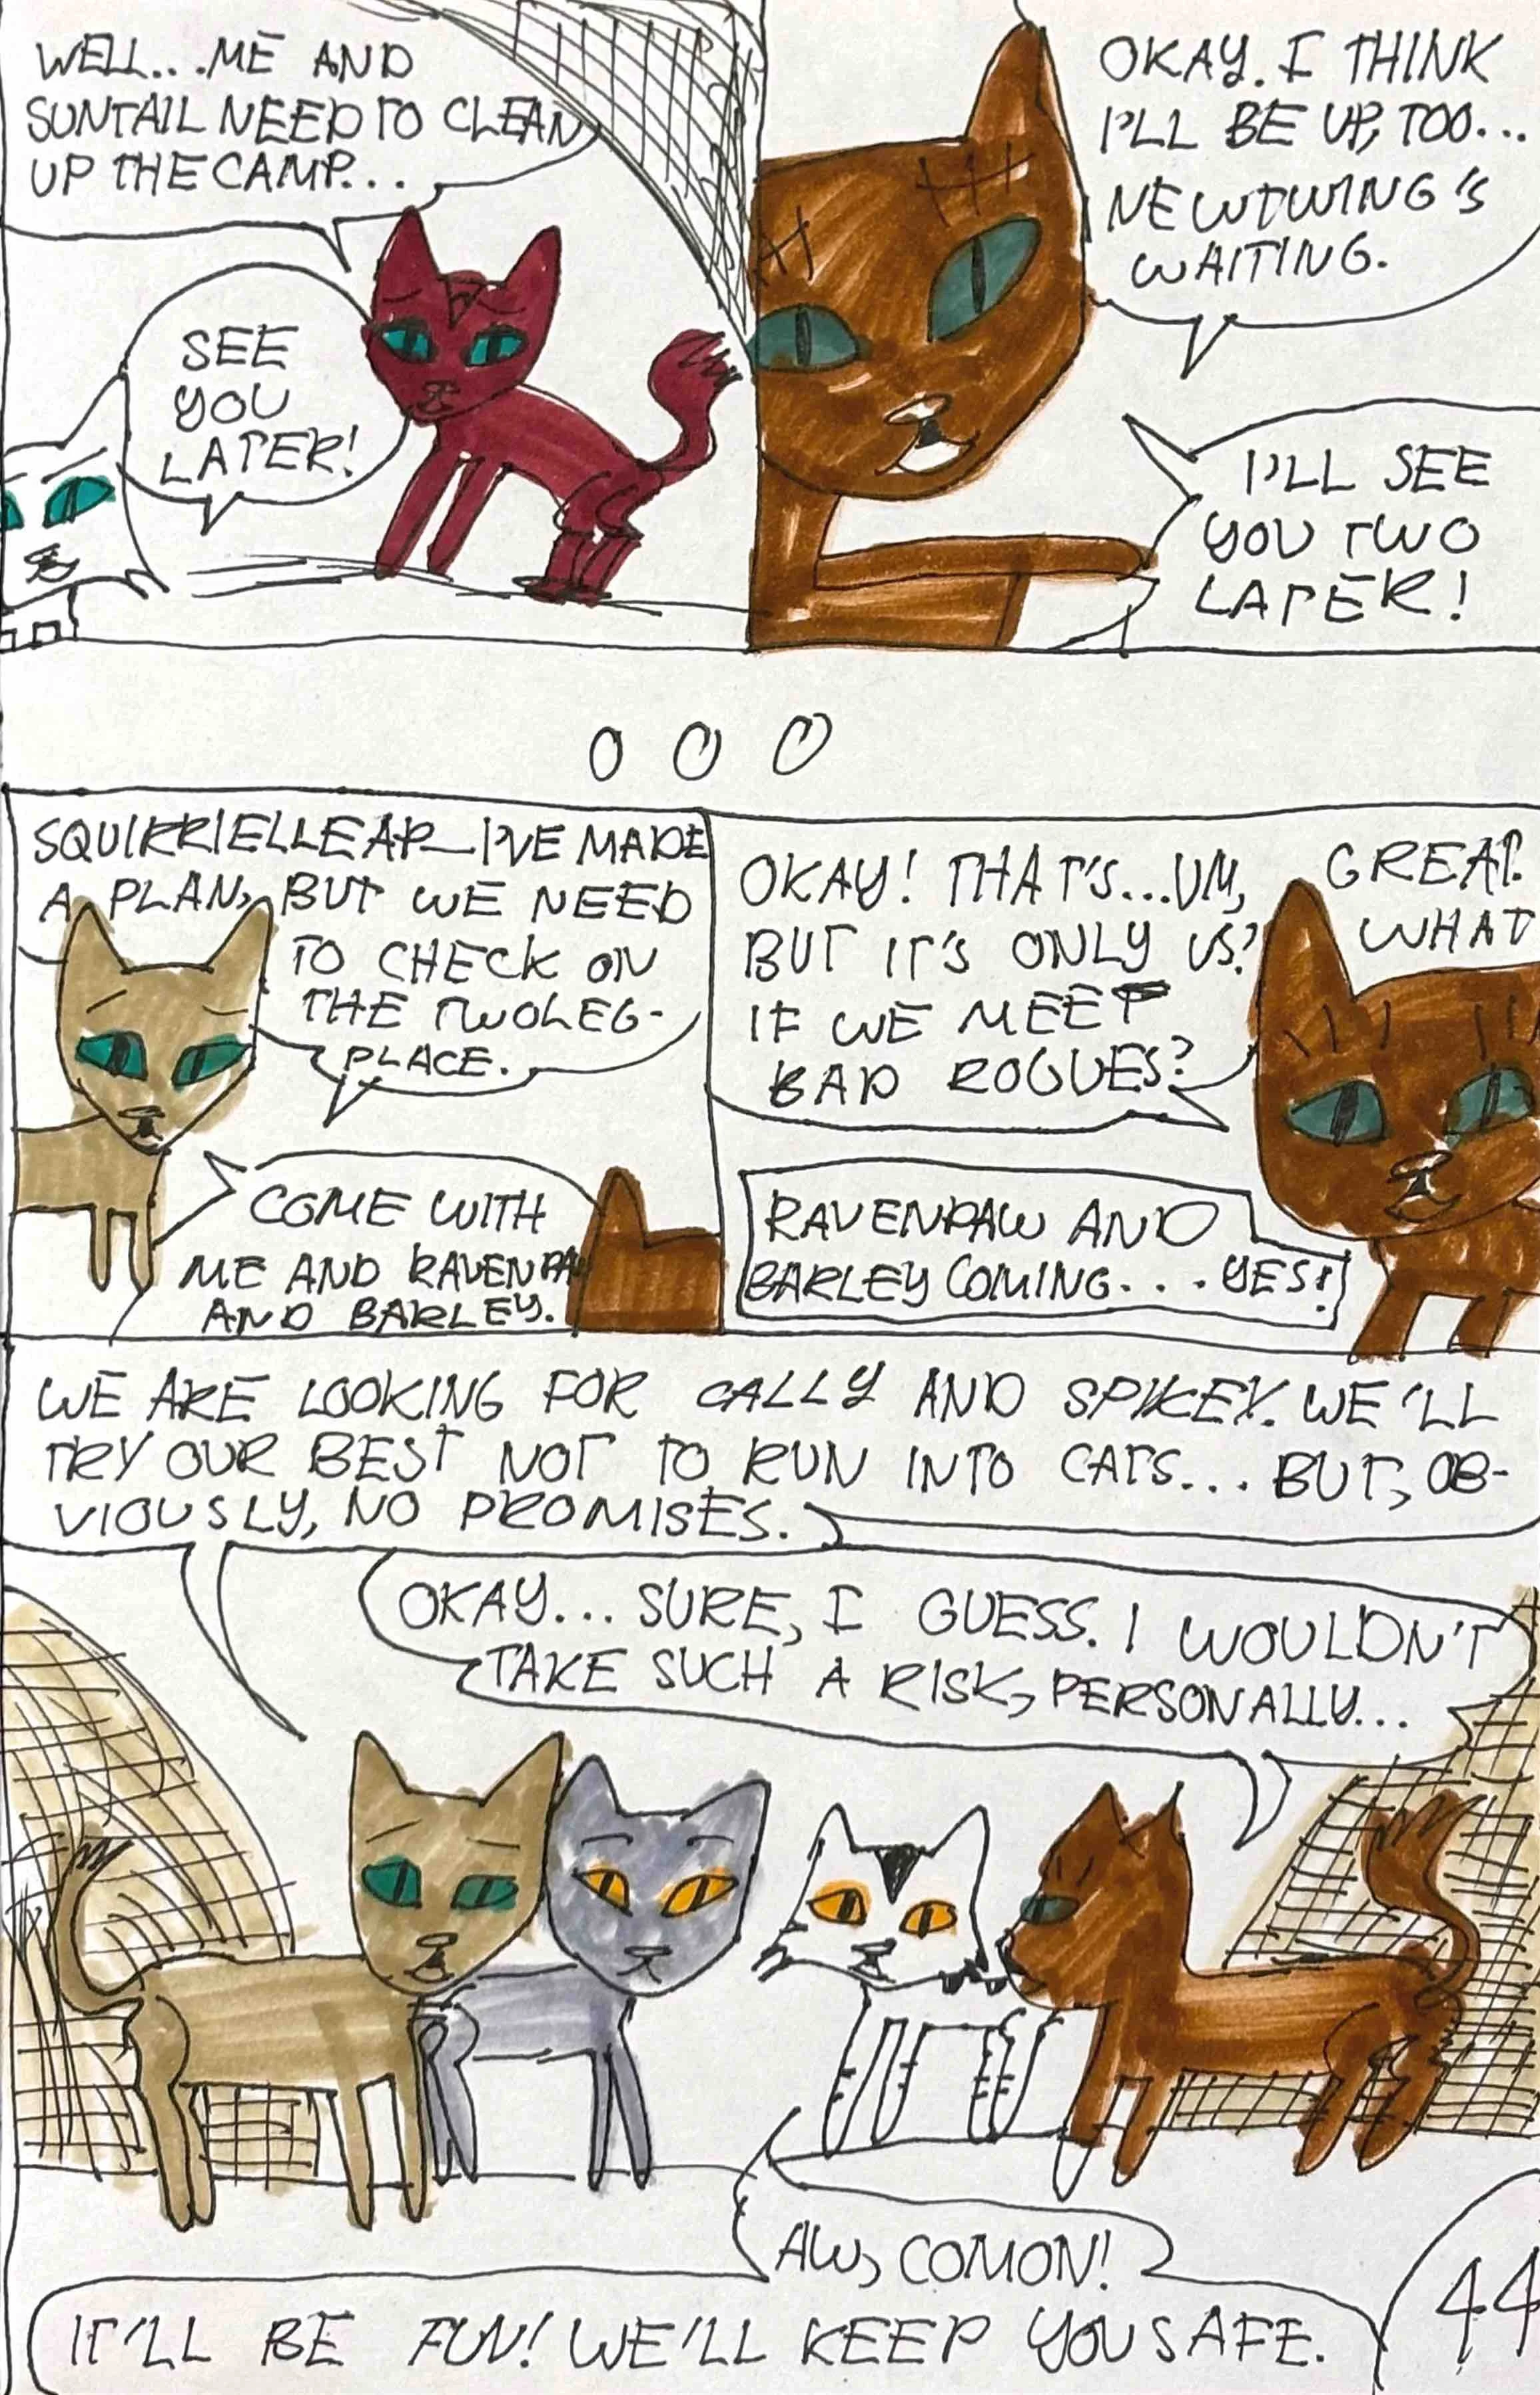 WELL...ME AND
SUNTAIL NEED TO CLEAN
UP THE CAMP...
SEE
YOU
LATER!
OKAY. I THINK
I'LL BE UP, TOO...
NEWTWING'S
WAITING.
I'LL SEE
YOU TWO
LATER!
SQUIRRIELLEAP—I'VE MADE
A PLAN, BUT WE NEED
TO CHECK ON
THE TWOLEG-
PLACE.
COME WITH
ME AND RAVENPA
AND BARLEY.
OKAY! THAT'S...UM,
BUT IT'S ONLY US?
IF WE MEET
BAD ROGUES?
GREAT.
WHAT
RAVENPAW AND
BARLEY COMING... YES!
WE ARE LOOKING FOR CALLY AND SPIKEY. WE'LL
TRY OUR BEST NOT TO RUN INTO CATS... BUT, OB-
VIOUSLY, NO PROMISES.
OKAY... SURE, I GUESS. I WOULDN'T
TAKE SUCH A RISK, PERSONALLY...
AW, COMON!
IT'LL BE FUN! WE'LL KEEP YOU SAFE.
44